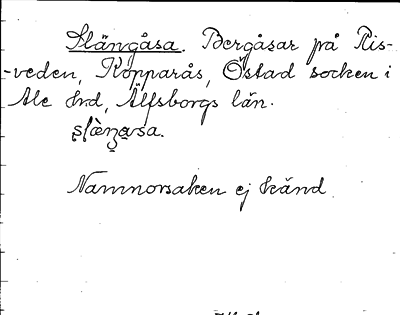 Slängåsa. Bergåsar på Ris-
-veden, Kopparås, Östad socken i
Ale hrd, Älfsborgs län.
slæ̀ŋa̱sa.
Namnorsaken ej känd.